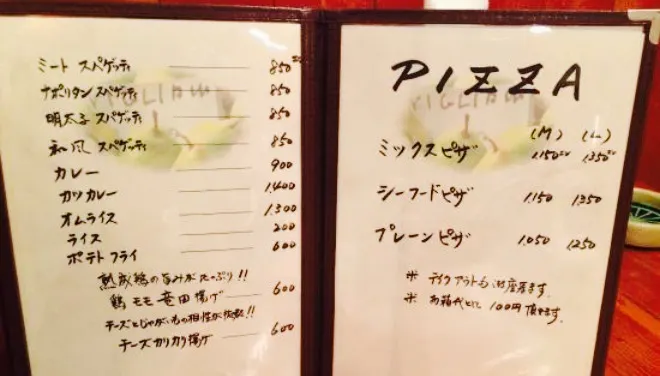 ミート スパゲッティ 850円
ナポリタン スパゲッティ 850
明太子 スパゲッティ 850
和風 スパゲッティ 850
カレー 900
カツカレー 1.400
オムライス 1.300
ライス 200
ポテトフライ 600
熟成鶏の旨みがたっぷり!!
鶏モモ 竜田揚げ 600
チーズとじゃがいもの相性が抜群!!
チーズカリカリ揚げ 600
PIZZA
(M) (L)
ミックスピザ 1.150円 1.350円
シーフードピザ 1.150 1.350
プレーンピザ 1.050 1.250
※ テイクアウトも出来ます.
※ お箱代として100円頂きます.